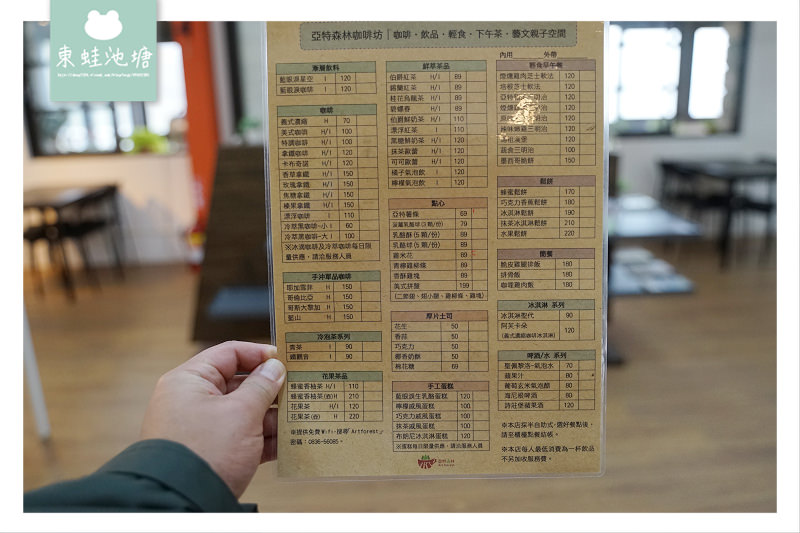 東蛙池塘
亞特森林咖啡坊「咖啡・飲品・輕食・下午茶・藝文親子空間
漸層飲料
藍眼淚星空 I 120
藍眼淚咖啡 I 120
咖啡
義式濃縮 H 70
美式咖啡 H/I 100
特調咖啡 H/I 100
拿鐵咖啡 H/I 120
卡布奇諾 H/I 120
香草拿鐵 H/I 150
玫瑰拿鐵 H/I 150
焦糖拿鐵 H/I 150
榛果拿鐵 H/I 150
漂浮咖啡 I 110
冷萃黑咖啡-小 I 60
冷萃黑咖啡-大 I 100
※冰滴咖啡及冷萃咖啡每日限
量供應，請洽服務人員
手沖單品咖啡
耶加雪菲 H 150
哥倫比亞 H 150
哥斯大黎加 H 150
藍山 H 150
冷泡茶系列
青茶 I 90
鐵觀音 I 90
花果茶品
蜂蜜香柚茶 H/I 110
蜂蜜香柚茶(壺)H 210
花果茶 H/I 120
花果茶(壺) H 220
※提供免費Wifi-搜尋「Artforest」
密碼：0836-56085。
鮮萃茶品
伯爵紅茶 H/I 89
錫蘭紅茶 H/I 89
桂花烏龍茶 H/I 89
碧螺春 H/I 89
伯爵鮮奶茶 H/I 110
漂浮紅茶 I 110
黑糖鮮奶茶 H/I 120
抹茶歐蕾 H/I 120
可可歐蕾 H/I 120
橘子氣泡飲 I 120
檸檬氣泡飲 I 120
點心
亞特薯條 69
菠蘿乳酪酥(3顆/份) 79
乳酪酥(5顆/份) 89
乳酪球(5顆/份) 89
雞米花 89
青檸雞柳條 89
香酥雞塊 89
美式拼盤 199
(二節翅、翅小腿、雞柳條、雞塊)
厚片土司
花生 50
香蒜 50
巧克力 50
椰香奶酥 50
棉花糖 69
手工蛋糕
藍眼淚生乳酪蛋糕 120
檸檬戚風蛋糕 100
巧克力戚風蛋糕 100
抹茶戚風蛋糕 100
布朗尼冰淇淋蛋糕 120
※蛋糕每日限量供應，請洽服務人員
亞特森林
Artforest
內用 外帶
輕食早午餐
煙燻雞肉芝士軟法 120
培根芝士軟法 120
120
120
120
辣味燻雞三明治 120
120
蔬食三明治 100
墨西哥脆餅 150
鬆餅
蜂蜜鬆餅 170
巧克力香蕉鬆餅 180
冰淇淋鬆餅 190
抹茶冰淇淋鬆餅 210
水果鬆餅 220
簡餐
脆皮雞腿排飯 180
排骨飯 180
咖哩雞肉飯 180
冰淇淋 系列
冰淇淋聖代 90
阿芙卡朵 120
(義式濃縮咖啡冰淇淋)
啤酒/水 系列
聖佩黎洛-氣泡水 70
蘋果汁 80
葡萄玄米氣泡醋 80
海尼根啤酒 80
詩莊堡蘋果酒 120
※本店採半自助式，選好餐點後，
請至櫃檯點餐結帳。
※本店每人最低消費為一杯飲品
不另加收服務費。